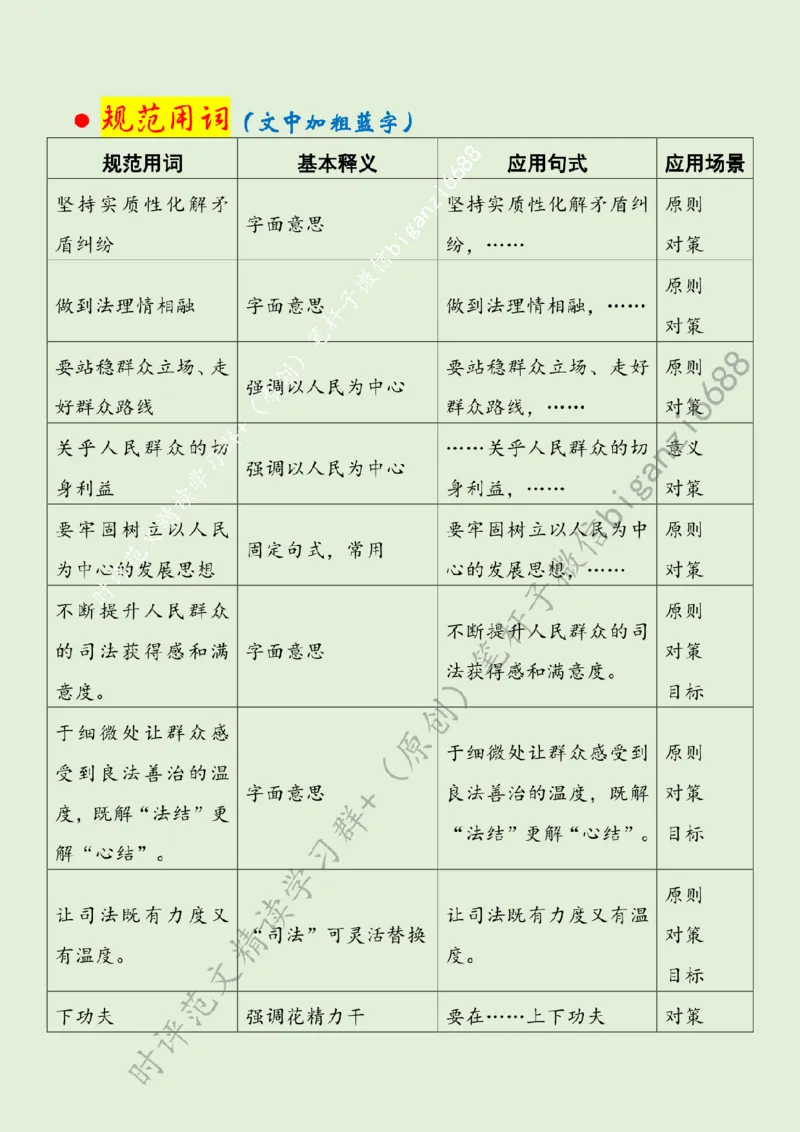 ● 规范用词（文中加粗蓝字）
规范用词 基本释义 应用句式 应用场景
坚持实质性化解矛 坚持实质性化解矛盾纠 原则
字面意思
盾纠纷 纷，…… 对策
原则
做到法理情相融 字面意思 做到法理情相融，……
对策
要站稳群众立场、走 要站稳群众立场、走好 原则
强调以人民为中心
好群众路线 群众路线，…… 对策
关乎人民群众的切 ……关乎人民群众的切 意义
强调以人民为中心
身利益 身利益，…… 对策
要牢固树立以人民 要牢固树立以人民为中 原则
固定句式，常用
为中心的发展思想 心的发展思想，…… 对策
不断提升人民群众 原则
不断提升人民群众的司
的司法获得感和满 字面意思 对策
法获得感和满意度。
意度。 目标
于细微处让群众感
于细微处让群众感受到 原则
受到良法善治的温
字面意思 良法善治的温度，既解 对策
度，既解“法结”更
“法结”更解“心结”。 目标
解“心结”。
原则
让司法既有力度又 让司法既有力度又有温
“司法”可灵活替换 对策
有温度。 度。
目标
下功夫 强调花精力干 要在……上下功夫 对策
时评范文精读学习群+（原创）笔杆子微信biganzi6688
时评范文精读学习群+（原创）笔杆子微信biganzi6688